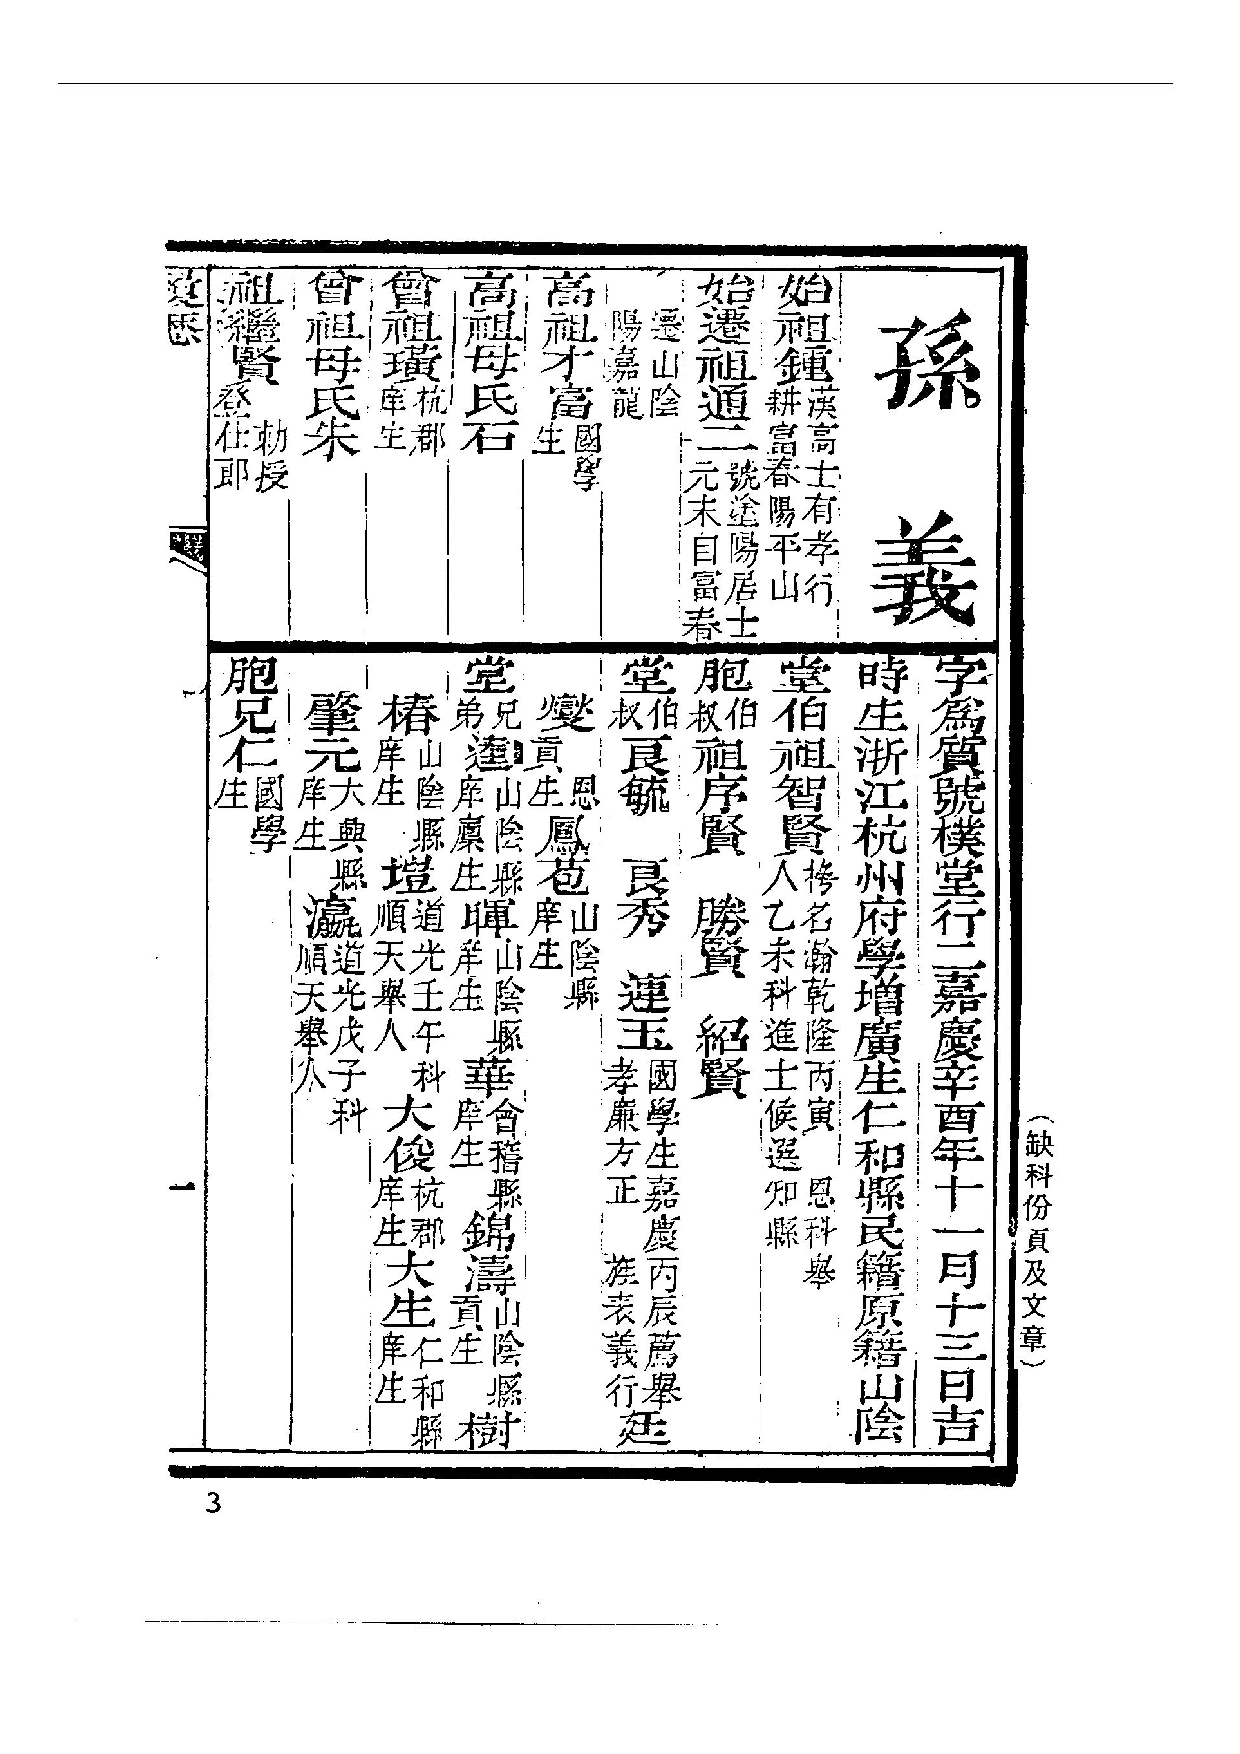 孫義
字爲質號樸堂行二嘉慶辛酉年十一月十三日吉
時生浙江杭州府學增廣生仁和縣民籍原籍山陰
始祖鍾漢高士有孝行
耕富春陽平山
始遷祖通二號塗陽居士
元末自富春
遷山陰
陽嘉龍
高祖才富國學
生
高祖母氏石
曾祖璜杭郡
庠生
曾祖母氏朱
祖繼賢勅授
登仕郎
堂伯祖智賢榜名瀚乾隆丙寅 恩科舉
人乙未科進士候選知縣
胞伯
叔祖序賢 勝賢 紹賢
堂伯
叔良毓 良秀 連玉國學生嘉慶丙辰薦舉
孝廉方正 旌表義行廷
燮恩
貢生鳳苞山陰縣
庠生
堂兄
弟達山陰縣
庠廩生暉山陰縣
庠生華會稽縣
庠生錦濤山陰縣
貢生樹
椿山陰縣
庠生塏道光壬午科
順天舉人大俊杭郡
庠生大生仁和縣
庠生
肇元大興縣
庠生瀛道光戊子科
順天舉人
胞兄仁國學
生
一
(缺科份頁及文章)
3